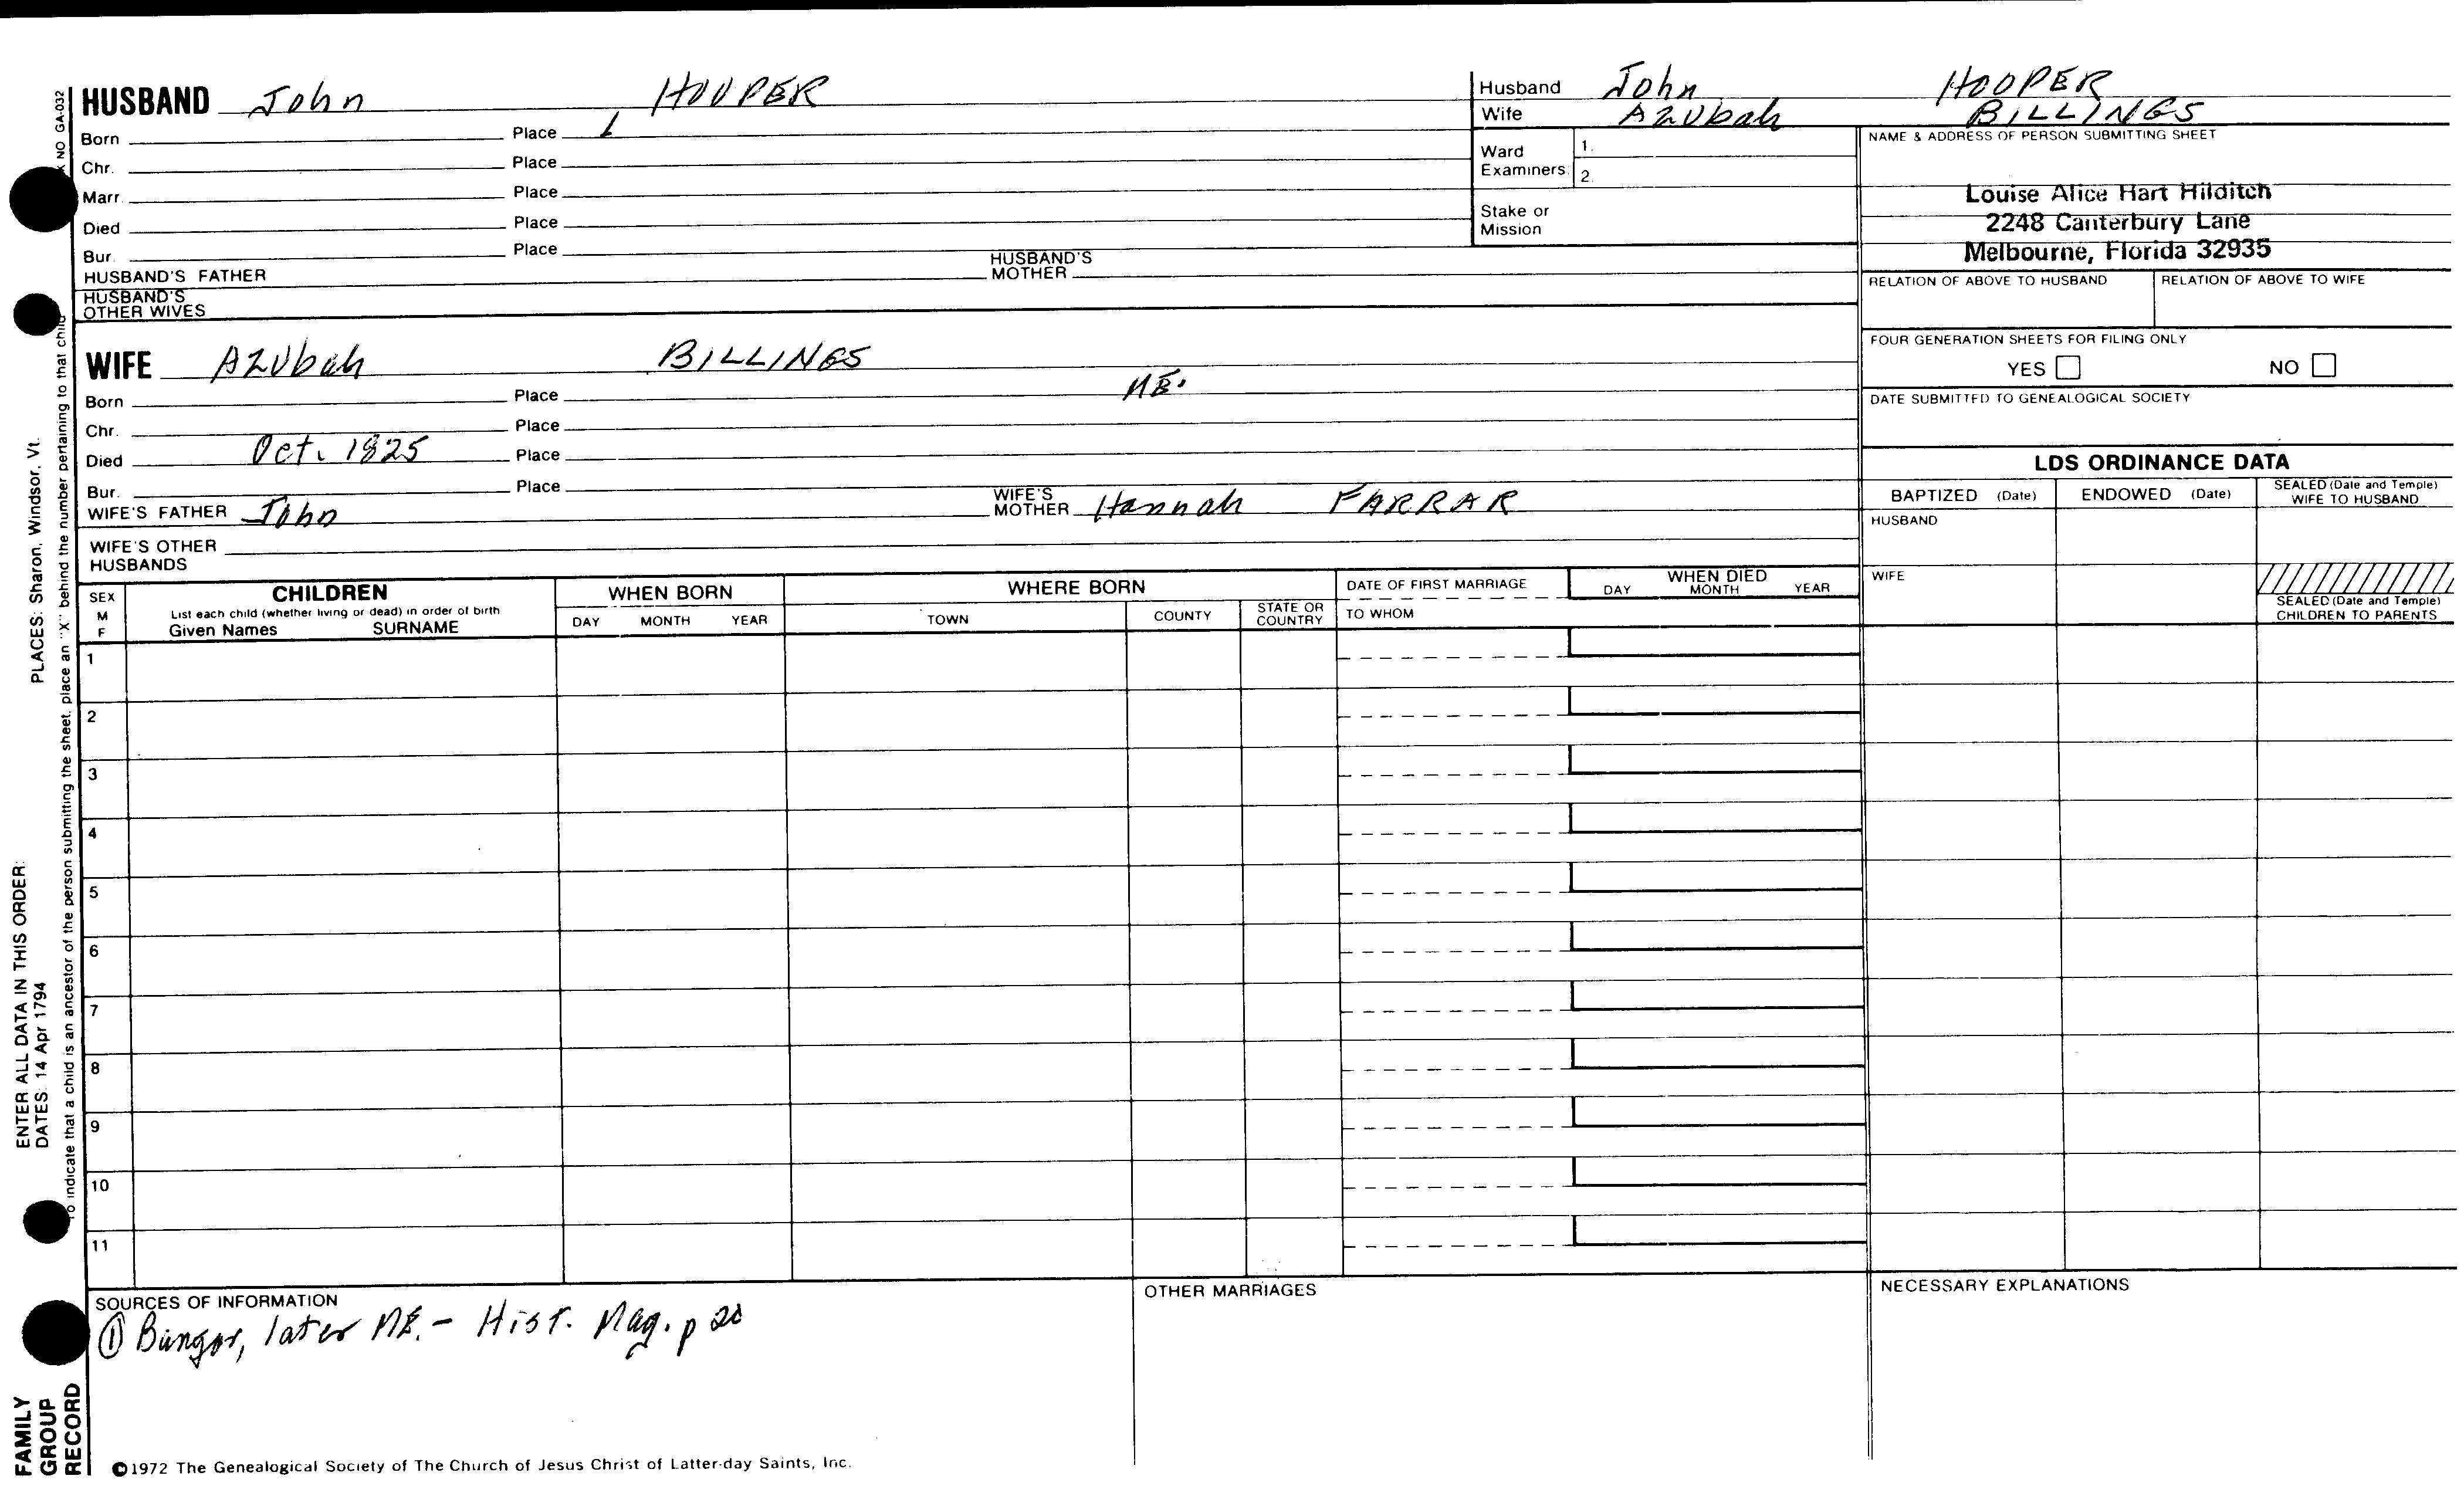 HUSBAND John HOOPER
Born Place
Chr. Place
Marr. Place
Died Place
Bur. Place
HUSBAND'S FATHER HUSBAND'S MOTHER
HUSBAND'S OTHER WIVES
Husband John HOOPER
Wife Azubah BILLINGS
Ward Examiners 1.
2.
Stake or Mission
NAME & ADDRESS OF PERSON SUBMITTING SHEET
Louise Alice Hart Hilditch
2248 Canterbury Lane
Melbourne, Florida 32935
RELATION OF ABOVE TO HUSBAND RELATION OF ABOVE TO WIFE
FOUR GENERATION SHEETS FOR FILING ONLY
YES NO
DATE SUBMITTED TO GENEALOGICAL SOCIETY
WIFE Azubah BILLINGS
Born Place ME.
Chr. Place
Died Oct. 1825 Place
Bur. Place
WIFE'S FATHER John WIFE'S MOTHER Hannah FARRAR
WIFE'S OTHER HUSBANDS
LDS ORDINANCE DATA
BAPTIZED (Date) ENDOWED (Date) SEALED (Date and Temple) WIFE TO HUSBAND
HUSBAND
WIFE
SEALED (Date and Temple) CHILDREN TO PARENTS
SEX M F
CHILDREN
List each child (whether living or dead) in order of birth
Given Names SURNAME
WHEN BORN
DAY MONTH YEAR
WHERE BORN
TOWN COUNTY STATE OR COUNTRY
DATE OF FIRST MARRIAGE
TO WHOM
WHEN DIED
DAY MONTH YEAR
1
2
3
4
5
6
7
8
9
10
11
SOURCES OF INFORMATION
① Bangor, later ME. - Hist. Mag. p
OTHER MARRIAGES
NECESSARY EXPLANATIONS
©1972 The Genealogical Society of The Church of Jesus Christ of Latter-day Saints, Inc.
FAMILY
GROUP
RECORD
ENTER ALL DATA IN THIS ORDER:
DATES: 14 Apr 1794 PLACES: Sharon, Windsor, Vt.
To indicate that a child is an ancestor of the person submitting the sheet, place an "X" behind the number pertaining to that child
NO GA-032